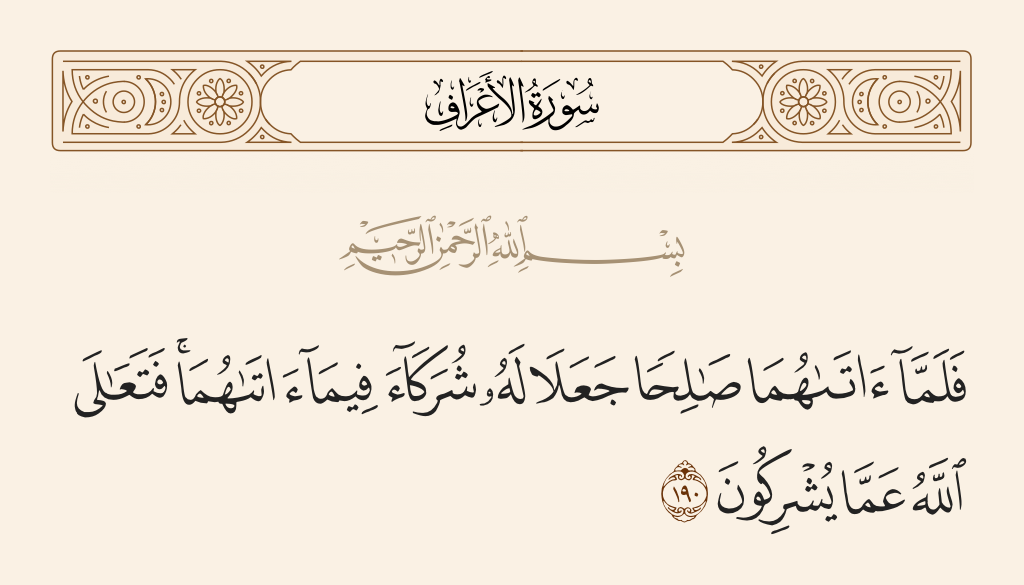 سُورَةُ الأَعْرَافِ
بِسْمِ ٱللَّهِ ٱلرَّحْمَٰنِ ٱلرَّحِيمِ
فَلَمَّآ ءَاتَىٰهُمَا صَٰلِحًا جَعَلَا لَهُۥ شُرَكَآءَ فِيمَآ ءَاتَىٰهُمَا ۚ فَتَعَٰلَى
ٱللَّهُ عَمَّا يُشْرِكُونَ ١٩٠